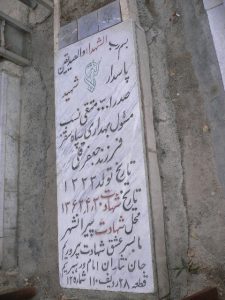 بسم رب الشهدا والصدیقین
پاسدار شهید
صدرا... متقی نسب
مسئول بهداری سپاه سقز
فرزند جعفرقلی
تاریخ تولد ۱۳۳۳
تاریخ شهادت ۱۳۶۲٫۴٫۳
محل شهادت پیرانشهر
ما بسر عشق شهادت پروریم
جان نثاران امام و رهبریم
قطعه ۲۸ ردیف ۱۱۰ شماره ۱۲